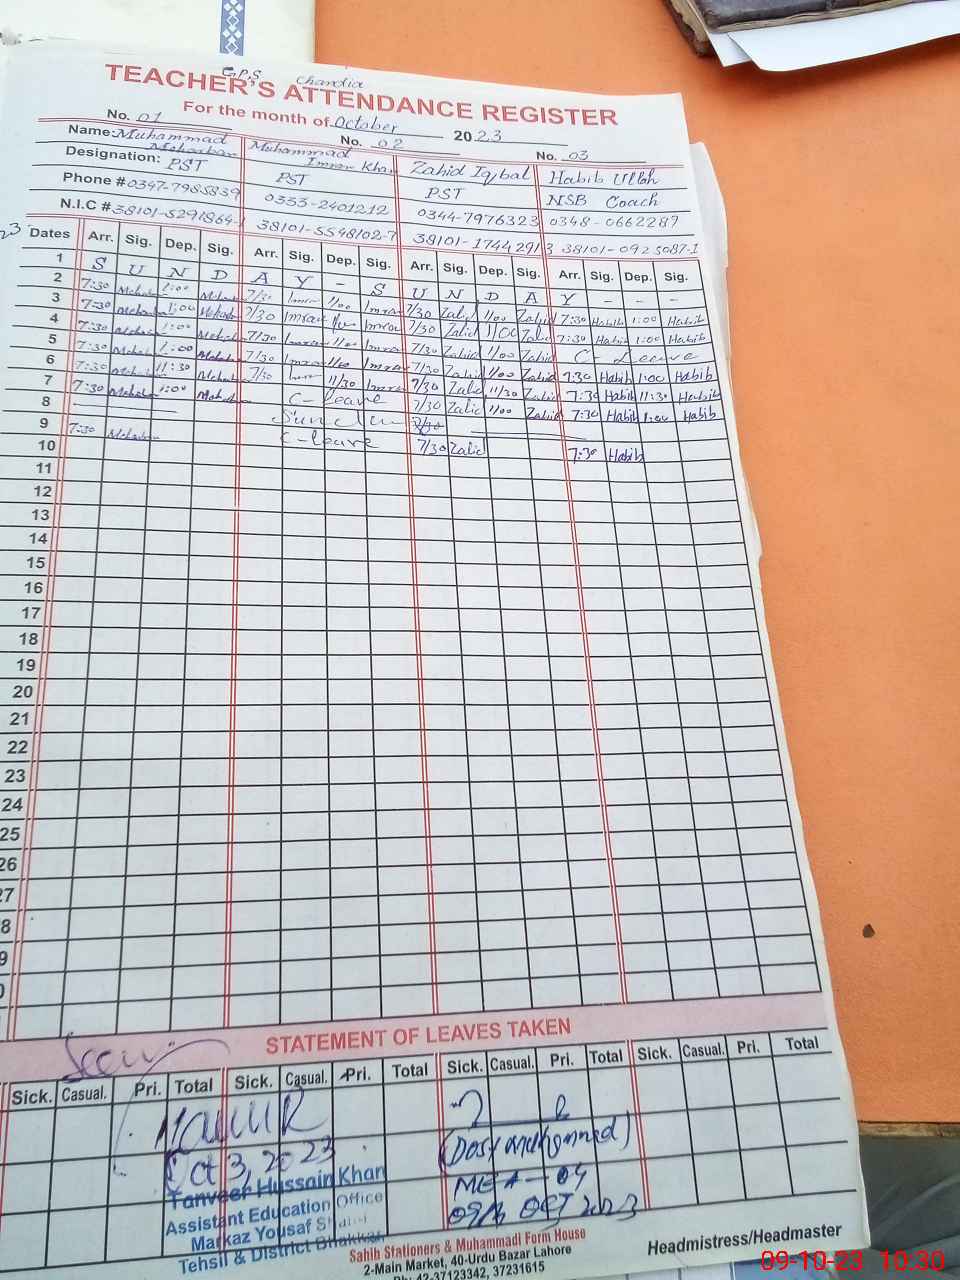 G.P.S Chandia
TEACHER'S ATTENDANCE REGISTER
For the month of October 2023
No. 01 No. 02 No. 03
Name: Muhammad Meharban Muhammad Imran Khan Zahid Iqbal Habib Ullah
Designation: PST PST PST NSB Coach
Phone # 0347-7985839 0333-2401212 0344-7976323 0348-0662287
N.I.C # 38101-5291864-1 38101-5548102-7 38101-1744291-3 38101-0925087-1
Dates Arr. Sig. Dep. Sig. Arr. Sig. Dep. Sig. Arr. Sig. Dep. Sig. Arr. Sig. Dep. Sig.
1 S U N D A Y - S U N D A Y - - -
2 7:30 1:00 7/30 Imran 1/00 Imran 7/30 Zahid 1/00 Zahid 7:30 Habib 1:00 Habib
3 7:30 1:00 7/30 Imran 1/00 Imran 7/30 Zahid 1/00 Zahid 7:30 Habib 1:00 Habib
4 7:30 1:00 7/30 Imran 1/00 Imran 7/30 Zahid 1/00 Zahid C-Leave
5 7:30 1:00 7/30 Imran 1/00 Imran 7/30 Zahid 1/00 Zahid 7:30 Habib 1:00 Habib
6 7:30 11:30 7/30 Imran 11/30 Imran 7/30 Zahid 11/30 Zahid 7:30 Habib 11:30 Habib
7 7:30 1:00 C-leave 7/30 Zahid 1/00 Zahid 7:30 Habib 1:00 Habib
8 Sunday
9 7:30 C-leave 7/30 Zahid 7:30 Habib
10
11
12
13
14
15
16
17
18
19
20
21
22
23
24
25
26
27
8
9
0
STATEMENT OF LEAVES TAKEN
Seen
Sick. Casual. Pri. Total Sick. Casual. Pri. Total Sick. Casual. Pri. Total Sick. Casual. Pri. Total
Oct 3, 2023
(Dost Muhammad)
MEA-04
09th Oct 2023
Tanveer Hussain Khan
Assistant Education Office
Markaz Yousaf Shah
Tehsil & District Bhakkar
Sahih Stationers & Muhammadi Form House
2-Main Market, 40-Urdu Bazar Lahore
Ph: 42-37123342, 37231615
Headmistress/Headmaster
09-10-23 10:30